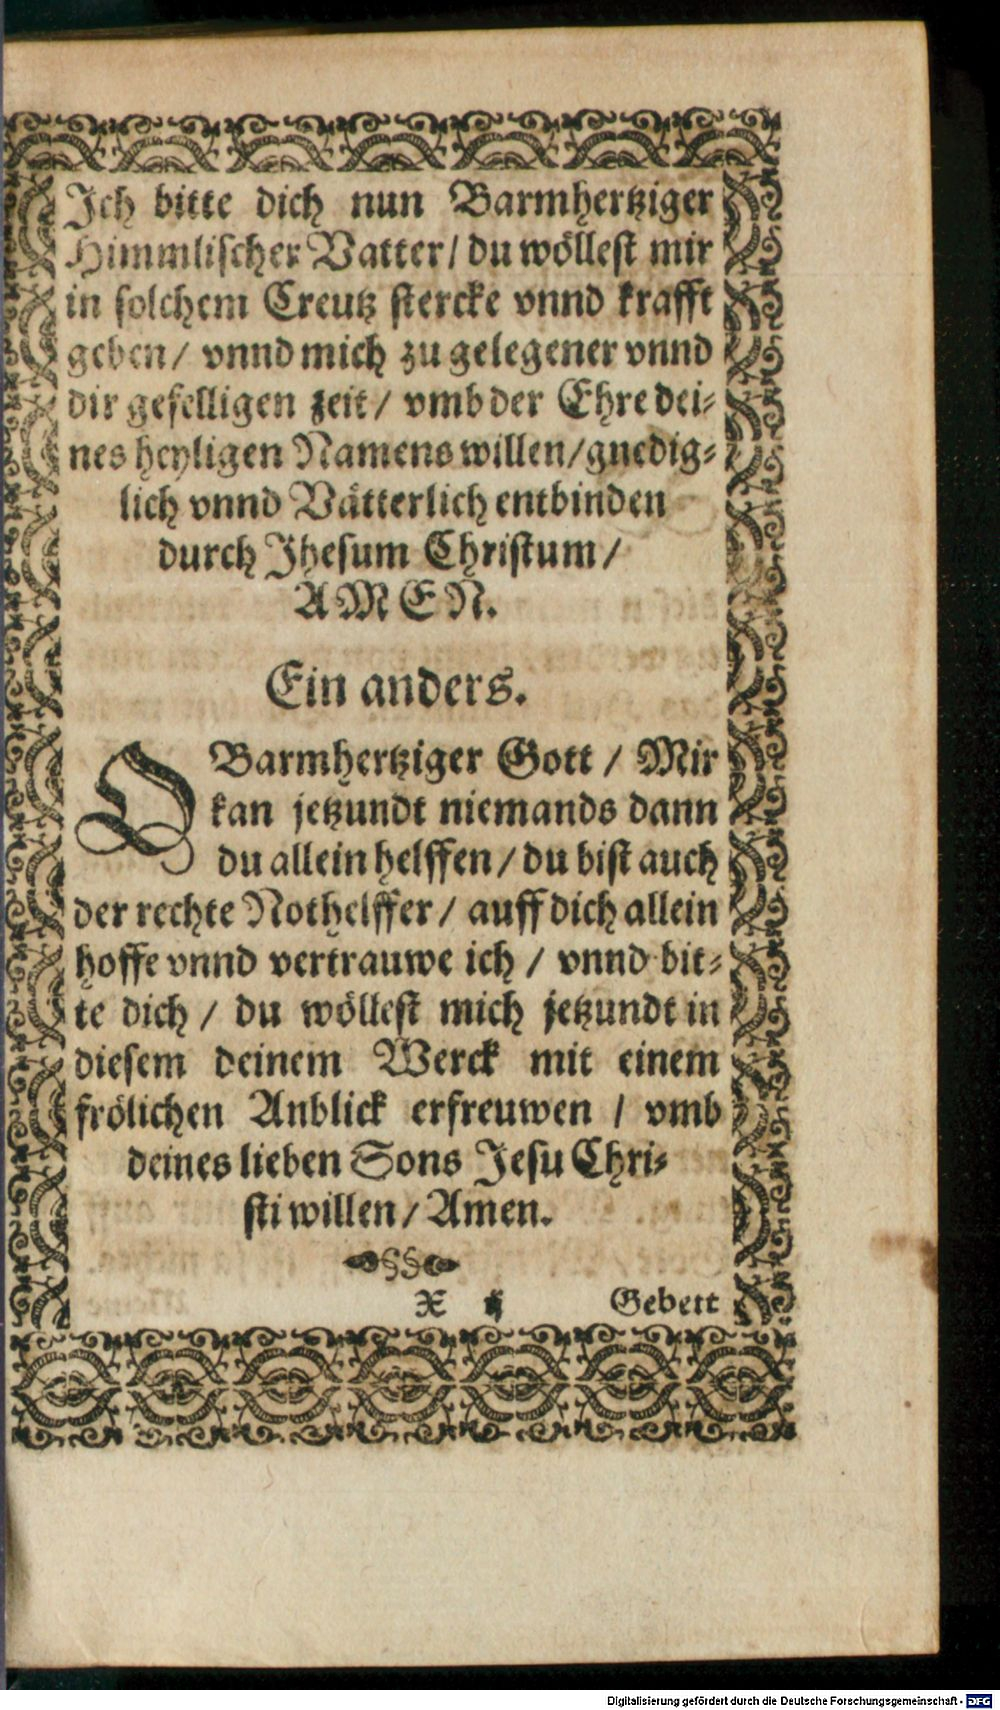 Ich bitte dich nun Barmhertziger
Himmlischer Vatter / du wöllest mir
in solchem Creutz stercke vnnd krafft
geben / vnnd mich zu gelegener vnnd
dir gefelligen zeit / vmb der Ehre dei⸗
nes heyligen Namens willen / gnedig⸗
lich vnnd Vätterlich entbinden
durch Jhesum Christum /
AMEN.
Ein anders.
O Barmhertziger Gott / Mir
kan jetzundt niemands dann
du allein helffen / du bist auch
der rechte Nothelffer / auff dich allein
hoffe vnnd vertrauwe ich / vnnd bit⸗
te dich / du wöllest mich jetzundt in
diesem deinem Werck mit einem
frölichen Anblick erfreuwen / vmb
deines lieben Sons Jesu Chri⸗
sti willen / Amen.
X Gebett
Digitalisierung gefördert durch die Deutsche Forschungsgemeinschaft - DFG